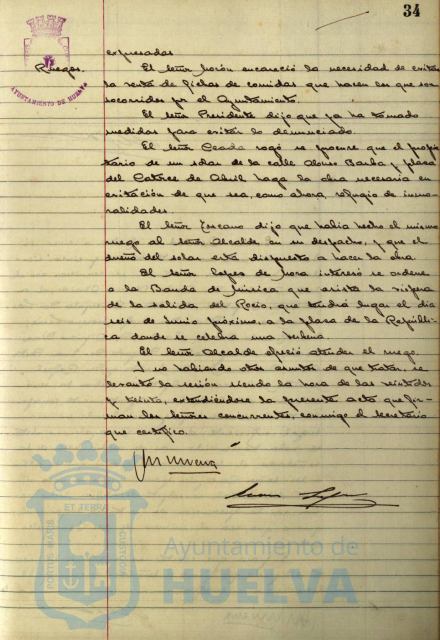 34
AYUNTAMIENTO DE HUELVA
expresadas
Ruegos. El señor Morón encareció la necesidad de evitar
la venta de fichas de comidas que hacen los que son
socorridos por el Ayuntamiento.
El señor Presidente dijo que ya ha tomado
medidas para evitar lo denunciado.
El señor Ceada rogó se procure que el propie
tario de un solar de la calle Alonso Barba y plaza
del Catorce de Abril haga la obra necesaria en
evitación de que sea, como ahora, refugio de inmo
ralidades.
El señor Toscano dijo que había hecho el mismo
ruego al señor Alcalde en su despacho, y que el
dueño del solar está dispuesto a hacer la obra.
El señor López de Mora interesó se ordene
a la Banda de Música que asista la víspera
de la salida del Rocío, que tendrá lugar el día
seis de Junio próximo, a la plaza de la Repúbli
ca donde se celebra una
El señor Alcalde ofreció atender el ruego.
Y no habiendo otros asuntos de que tratar, se
levantó la sesión siendo la hora de las veintidós
y treinta, extendiéndose la presente acta que fir
man los señores concurrentes, conmigo el Secretario
que certifico.
PORTUS MARIS
ET TERRÆ
CUSTODIA
Ayuntamiento de
HUELVA